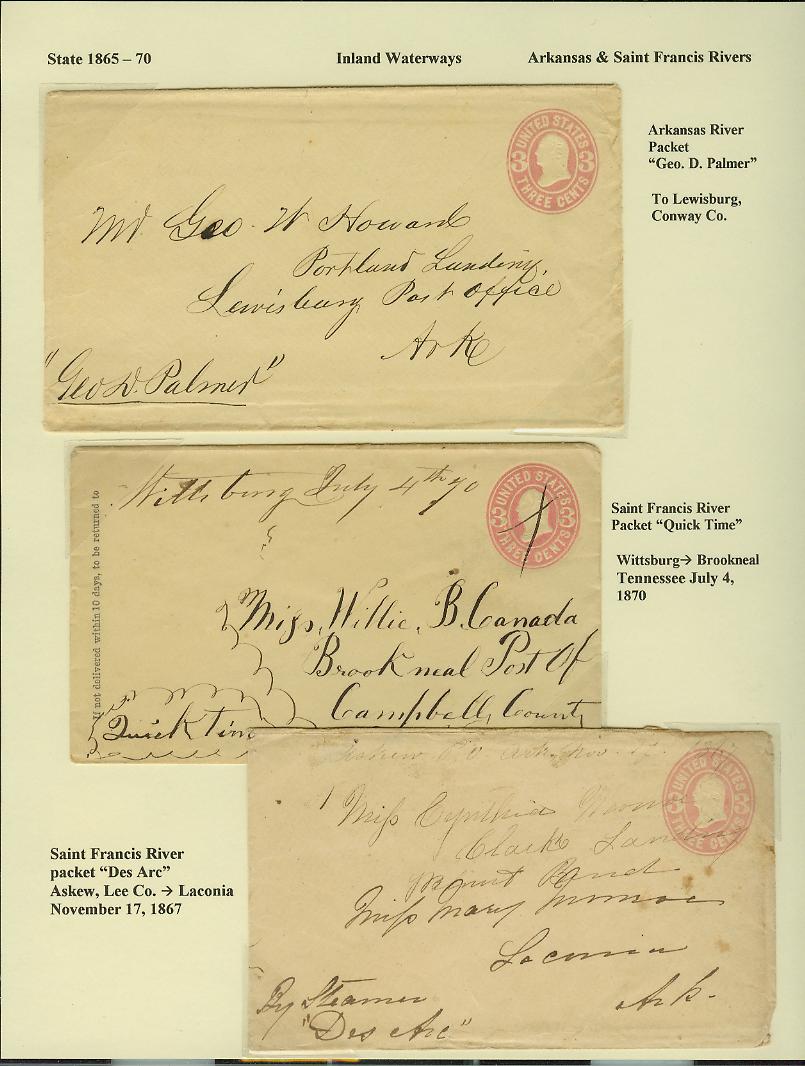 State 1865 – 70 Inland Waterways Arkansas & Saint Francis Rivers
UNITED STATES
3 3
THREE CENTS
Arkansas River
Packet
“Geo. D. Palmer”
To Lewisburg,
Conway Co.
Mr Geo. W Howard
Portland Landing,
Lewisburg Post office
Ark
"Geo D. Palmer"
Wittsburg July 4th 70
UNITED STATES
3 3
THREE CENTS
Saint Francis River
Packet “Quick Time”
Wittsburg→ Brookneal
Tennessee July 4,
1870
If not delivered within 10 days, to be returned to
Miss, Willie, B. Canada
Brookneal Post Of
Campbell, County
Quick Time
Askew P.O Ark Nov. 17
UNITED STATES
3 3
THREE CENTS
Miss Cynthia
Clark Landing
Miss Mary Munroe
Laconia
Ark.
By Steamer
"Des Arc"
Saint Francis River
packet “Des Arc”
Askew, Lee Co. → Laconia
November 17, 1867